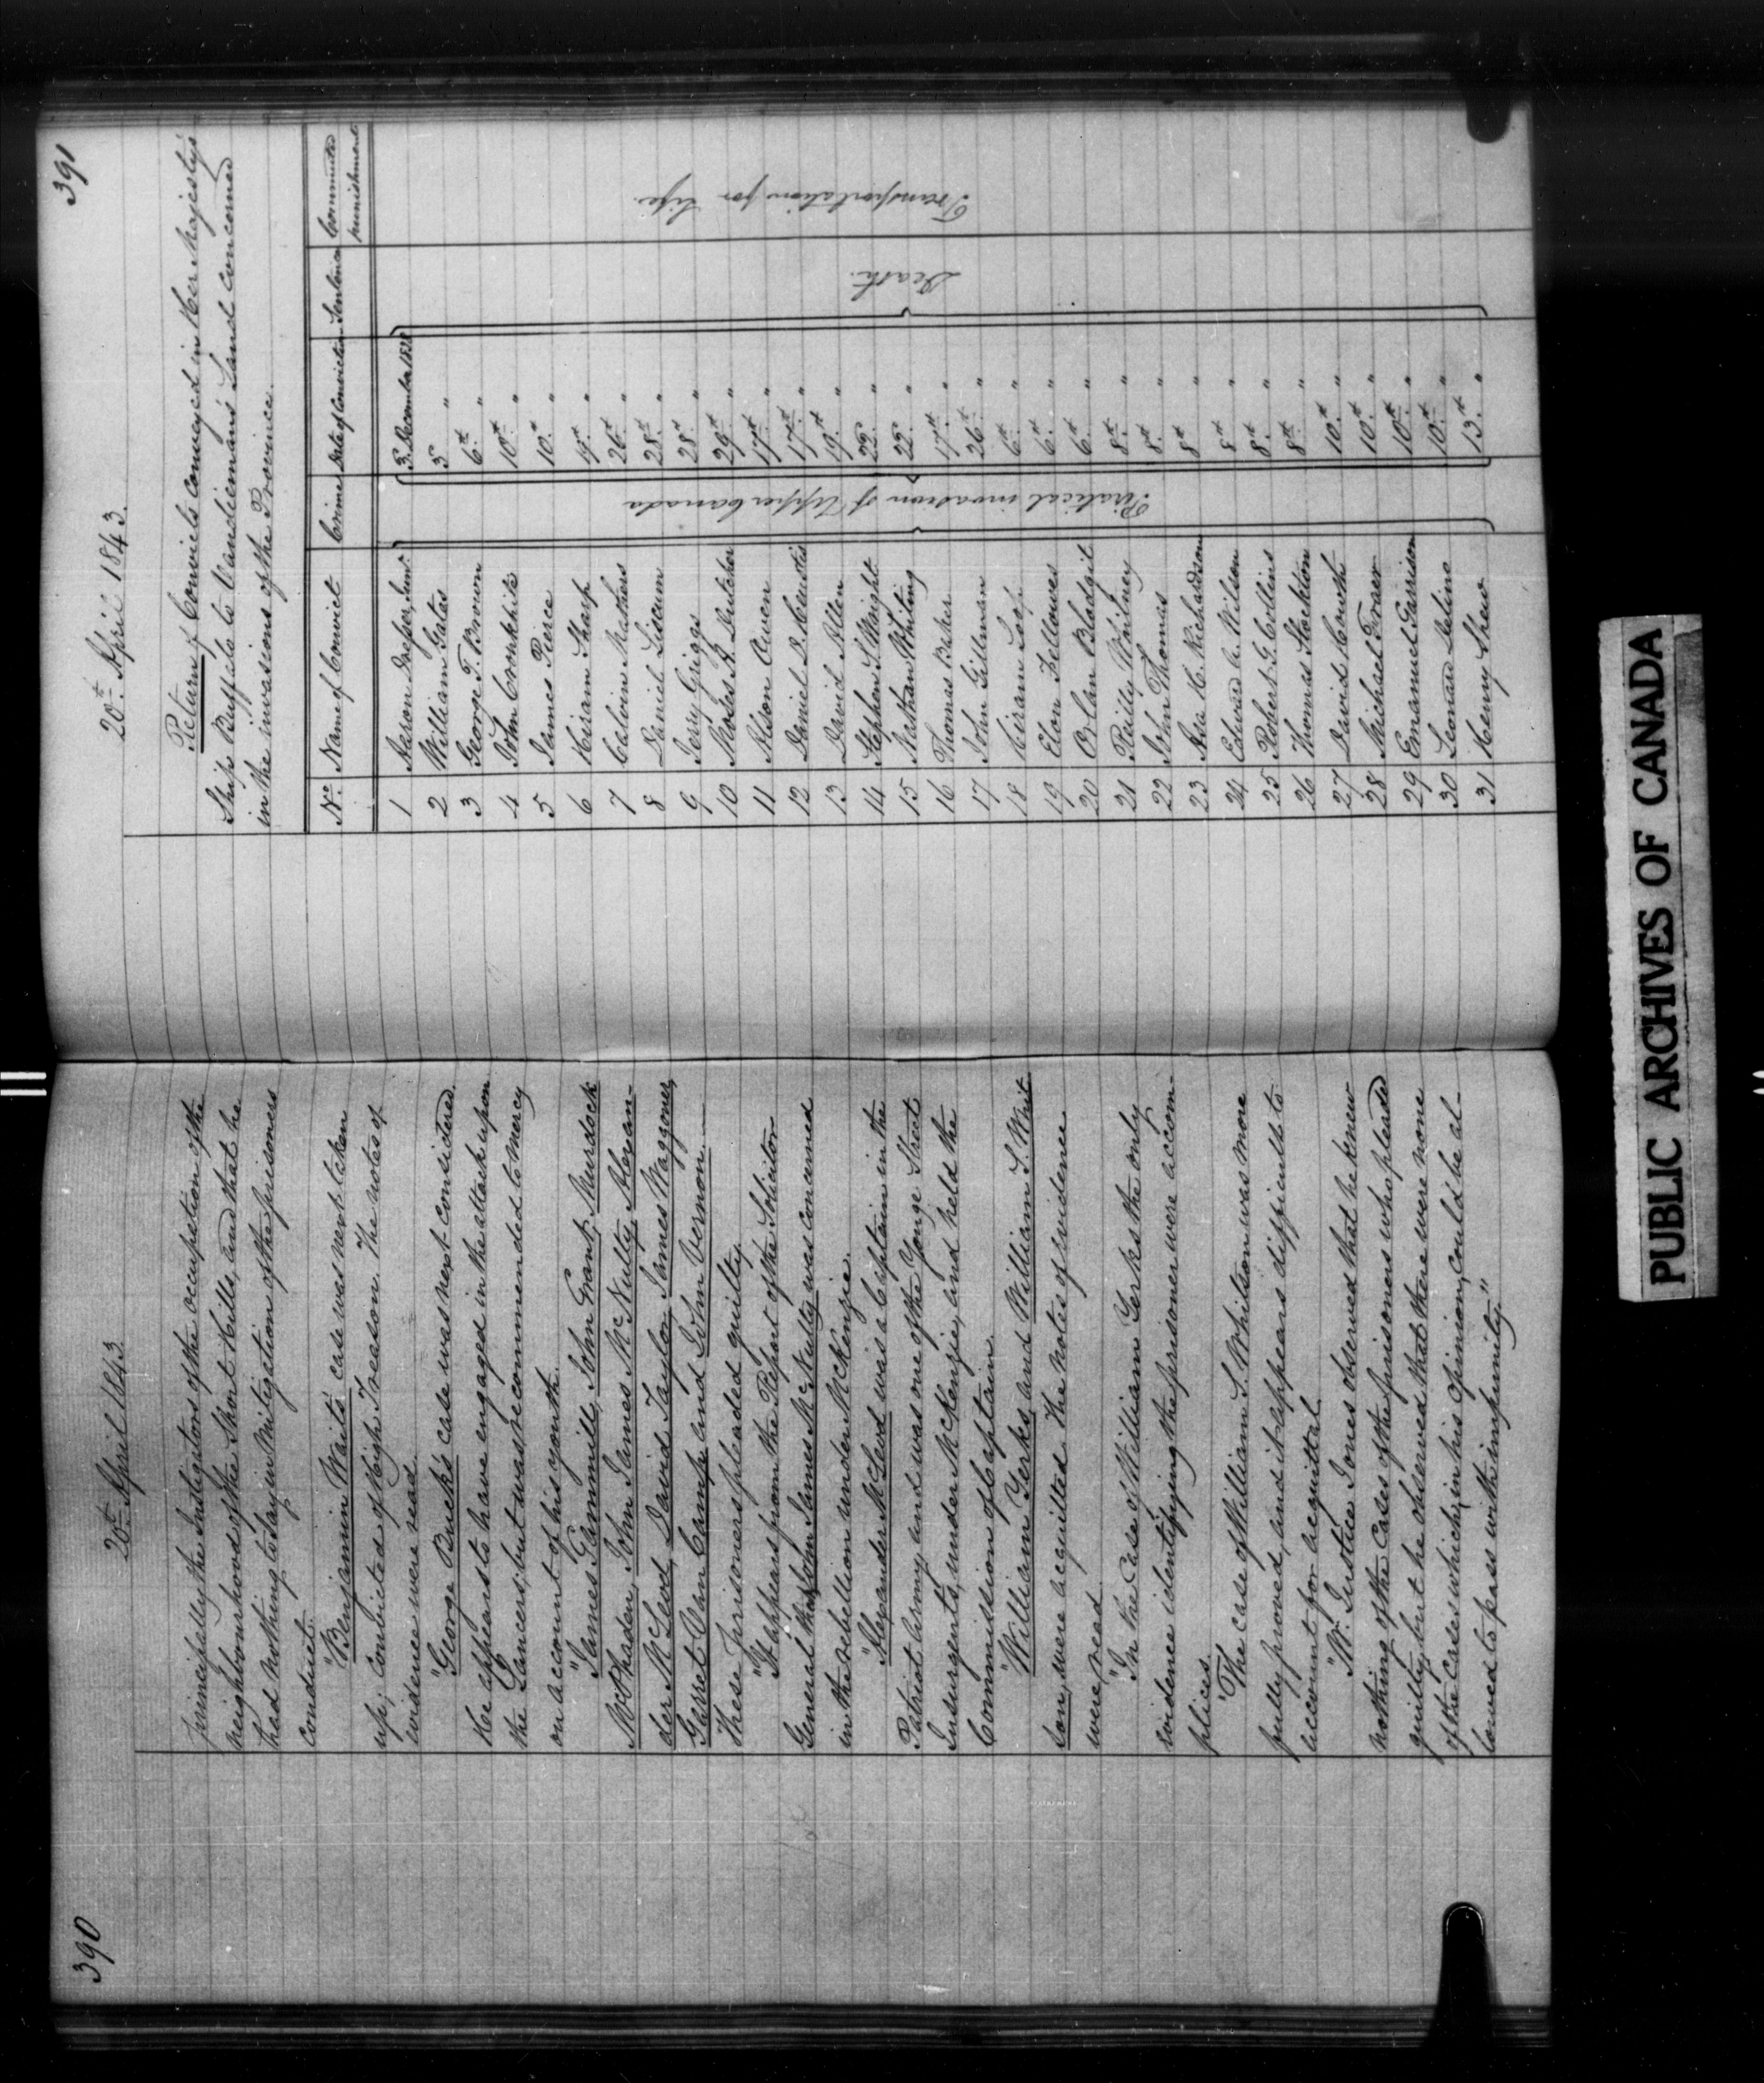 390
20th April 1843
principally the Instigators of the occupation of the
neighbourhood of the Short Hills, and that he
had nothing to say in Mitigation of the prisoners
conduct.
"Benjamin Wait's case was next taken
up; convicted of High Treason. The notes of
evidence were read.
"George Buck's case was next considered.
He appears to have engaged in the attack upon
the Lancers; but was recommended to mercy
on account of his youth.
"James Gammill, John Grant, Murdock
McPhaden, John James McNulty, Alexan-
der McLeod, David Taylor, James Waggoner,
Garret Van Camp and John Vernon.
These prisoners pleaded guilty.
"It appears from the Report of the Solicitor
General that John James McNulty was concerned
in the rebellion under McKenzie.
"Alexander McLeod was a Captain in the
Patriot Army, and was one of the Yonge Street
Insurgents, under McKenzie, and held the
Commission of Captain.
"William Yerks, and William S. Whit
son, were acquitted. The notes of evidence
were read.
"In the case of William Yerks the only
evidence identifying the prisoner were accom-
plices.
"The case of William S. Whitson was more
fully proved, and it appears difficult to
account for acquittal.
"Mr. Justice Jones observed that he knew
nothing of the cases of the prisoners who pleaded
guilty, but he observed that there were none
of the cases which, in his opinion, could be al-
lowed to pass with impunity."
391
20th April 1843.
Return of Convicts conveyed in Her Majesty's
Ship Buffalo to Vandieman's Land concerned
in the invasions of the Province.
No. Name of Convict Crime Date of Conviction Sentence Commuted punishment
1 Aaron Dresser, Junr. 3. December 1838
2 William Gates 3 "
3 George T. Brown 6th "
4 John Cronkhite 10th "
5 James Pierce 10th "
6 Hiram Sharp 17th "
7 Calvin Mathers 26th "
8 Daniel Liscum 28th "
9 Jerry Griggs 28th "
10 Moses A. Dutcher 29th "
11 Alson Owen 17th "
12 Daniel D. Heustis 17th "
13 David Allen 19th "
14 Stephen S. Wright 22. "
15 Nathan Whiting 22. "
16 Thomas Baker 17th "
17 John Gillman 26th "
18 Hiram Loop 6th "
19 Elon Fellowes 6th "
20 Orlan Bladgit 6th "
21 Reilly Whitney 8th "
22 John Thomas 8th "
23 Asa H. Richardson 8th "
24 Edward A. Wilson 8th "
25 Robert G. Collins 8th "
26 Thomas Stockton 8th "
27 David Howth 10th "
28 Michael Fraer 10th "
29 Emanuel Garrison 10th "
30 Leonard Delino 10th "
31 Henry Shew 13th "
Piratical invasion of Upper Canada
Death.
Transportation for Life.
PUBLIC ARCHIVES OF CANADA